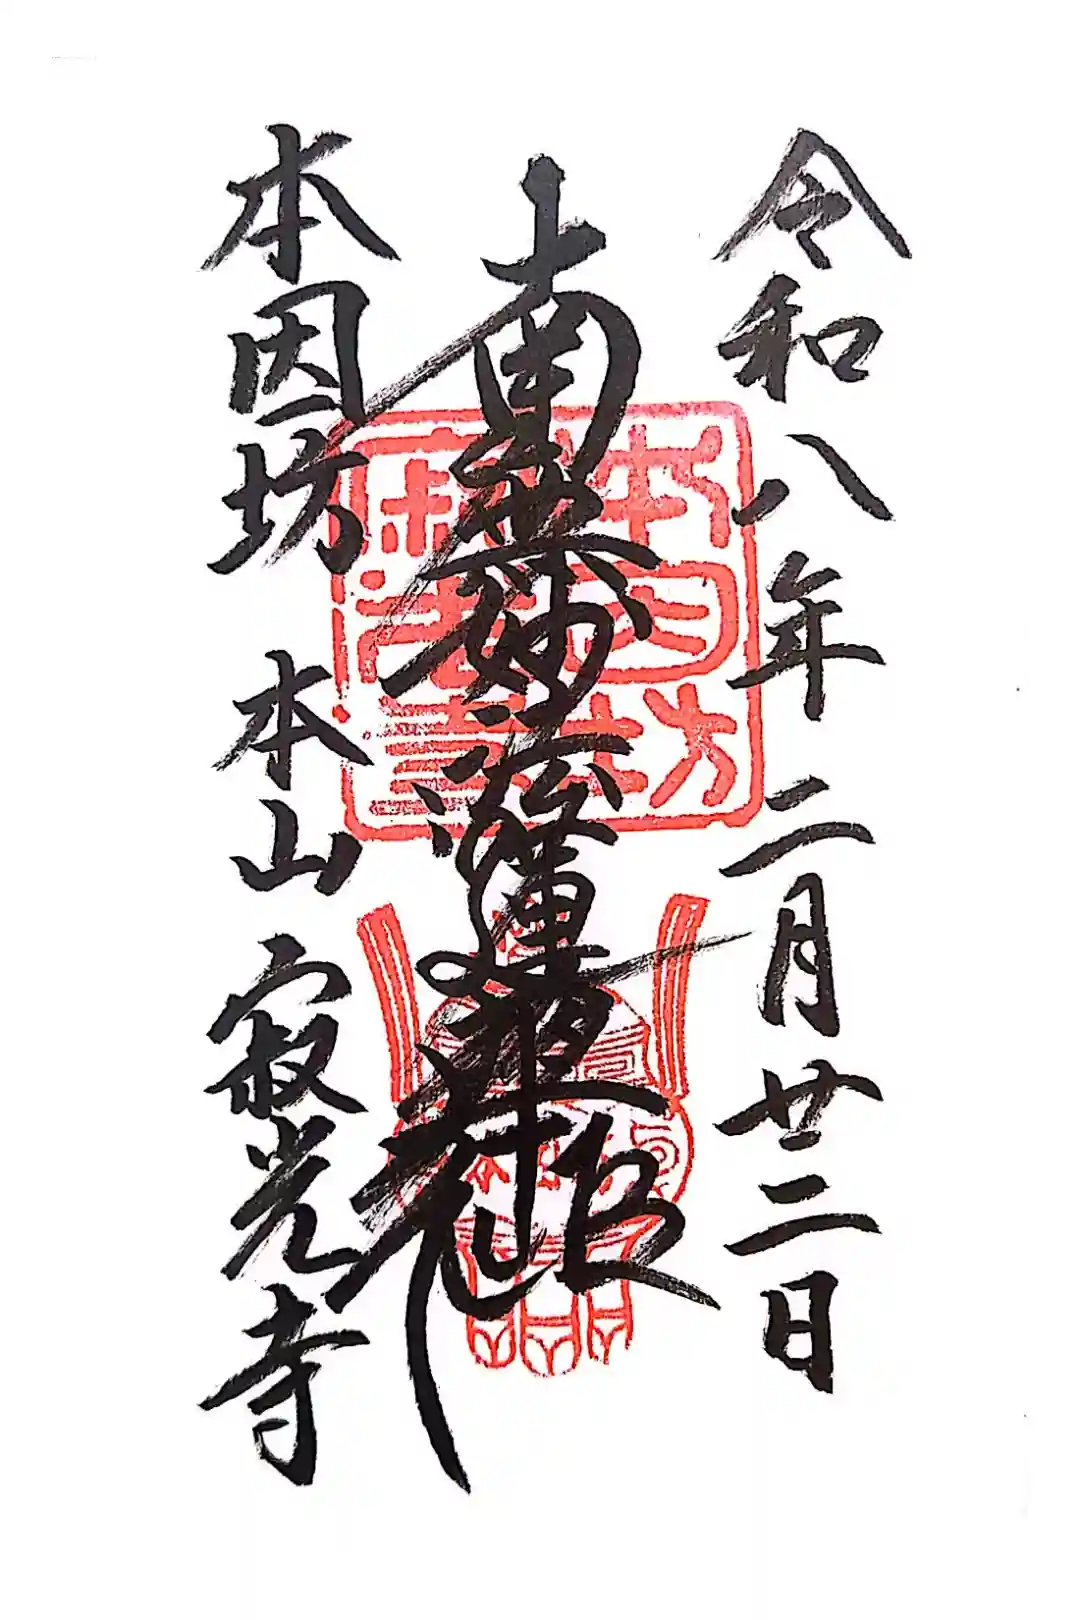 令和八年二月廿二日
南無妙法蓮華経
本因坊 本山 寂光寺
本因坊